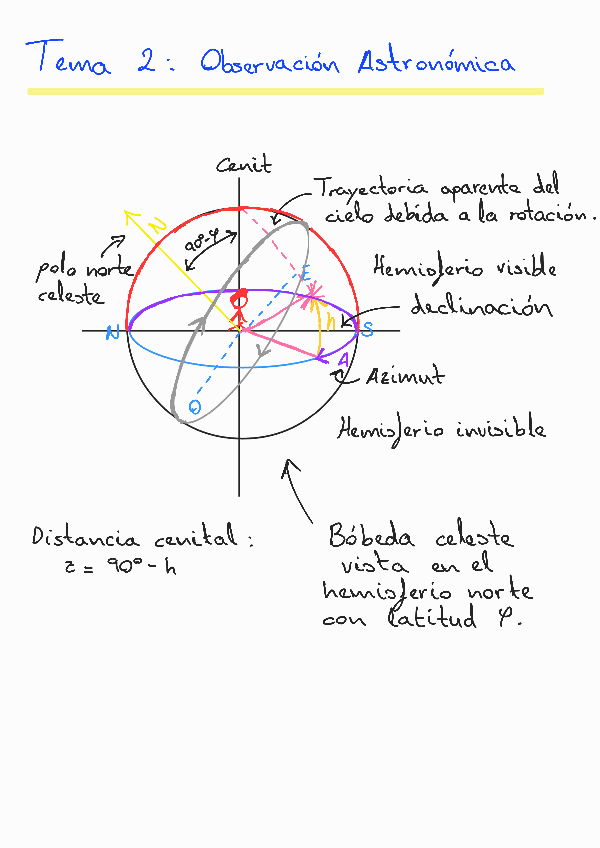 Tema 2: Observación Astronómica
Cenit
Trayectoria aparente del
cielo debida a la rotación.
N
90º-φ
polo norte
celeste
E
Hemisferio visible
declinación
h
N
S
A
Azimut
O
Hemisferio invisible
Distancia cenital:
z = 90º - h
Bóbeda celeste
vista en el
hemisferio norte
con latitud φ.